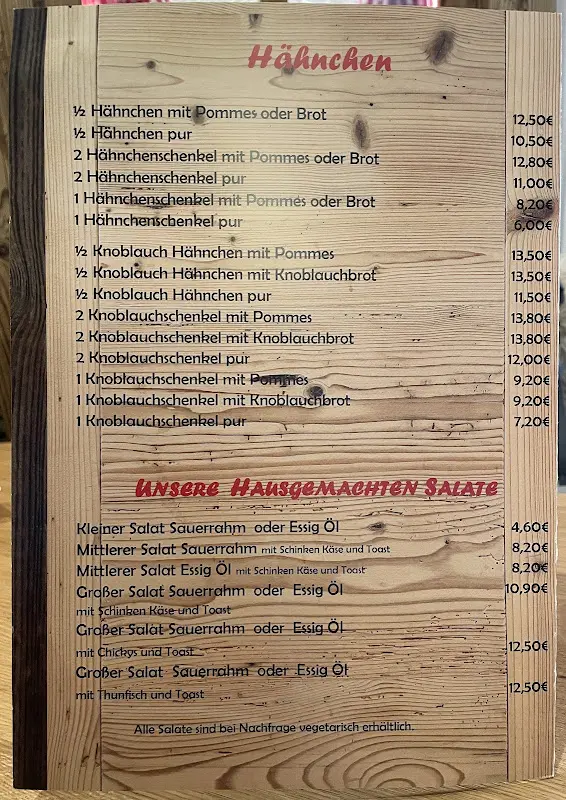 Hähnchen
½ Hähnchen mit Pommes oder Brot 12,50€
½ Hähnchen pur 10,50€
2 Hähnchenschenkel mit Pommes oder Brot 12,80€
2 Hähnchenschenkel pur 11,00€
1 Hähnchenschenkel mit Pommes oder Brot 8,20€
1 Hähnchenschenkel pur 6,00€
½ Knoblauch Hähnchen mit Pommes 13,50€
½ Knoblauch Hähnchen mit Knoblauchbrot 13,50€
½ Knoblauch Hähnchen pur 11,50€
2 Knoblauchschenkel mit Pommes 13,80€
2 Knoblauchschenkel mit Knoblauchbrot 13,80€
2 Knoblauchschenkel pur 12,00€
1 Knoblauchschenkel mit Pommes 9,20€
1 Knoblauchschenkel mit Knoblauchbrot 9,20€
1 Knoblauchschenkel pur 7,20€
Unsere Hausgemachten Salate
Kleiner Salat Sauerrahm oder Essig Öl 4,60€
Mittlerer Salat Sauerrahm mit Schinken Käse und Toast 8,20€
Mittlerer Salat Essig Öl mit Schinken Käse und Toast 8,20€
Großer Salat Sauerrahm oder Essig Öl 10,90€
mit Schinken Käse und Toast
Großer Salat Sauerrahm oder Essig Öl
mit Chickys und Toast 12,50€
Großer Salat Sauerrahm oder Essig Öl
mit Thunfisch und Toast 12,50€
Alle Salate sind bei Nachfrage vegetarisch erhältlich.